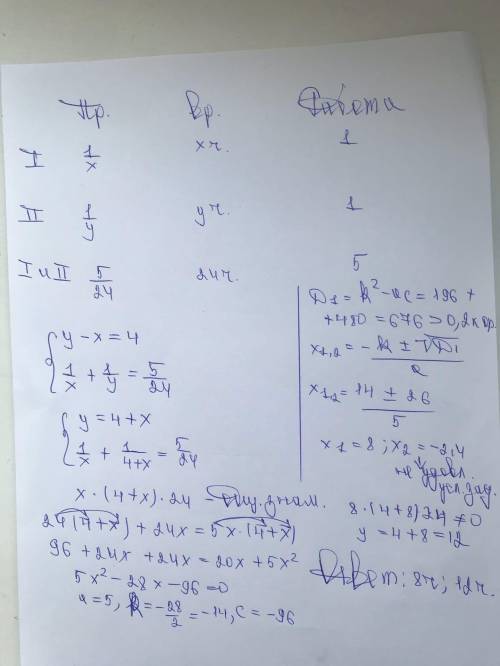 Пр. Вр. Работа
I 1/x x ч. 1
II 1/y y ч. 1
I и II 5/24 24 ч. 5
{ y - x = 4
1/x + 1/y = 5/24
{ y = 4 + x
1/x + 1/(4+x) = 5/24
x · (4+x) · 24 - общ. знам.
24(4+x) + 24x = 5x · (4+x)
96 + 24x + 24x = 20x + 5x²
5x² - 28x - 96 = 0
a = 5, k = -28/2 = -14, c = -96
D1 = k² - ac = 196 +
+ 480 = 676 > 0, 2 к
x1,2 = -k ± √D1 / a
x1,2 = 14 ± 26 / 5
x1 = 8; x2 = -2,4
не удовл.
усл. зад.
8 · (4+8) 24 ≠ 0
y = 4 + 8 = 12
Ответ: 8ч; 12ч.